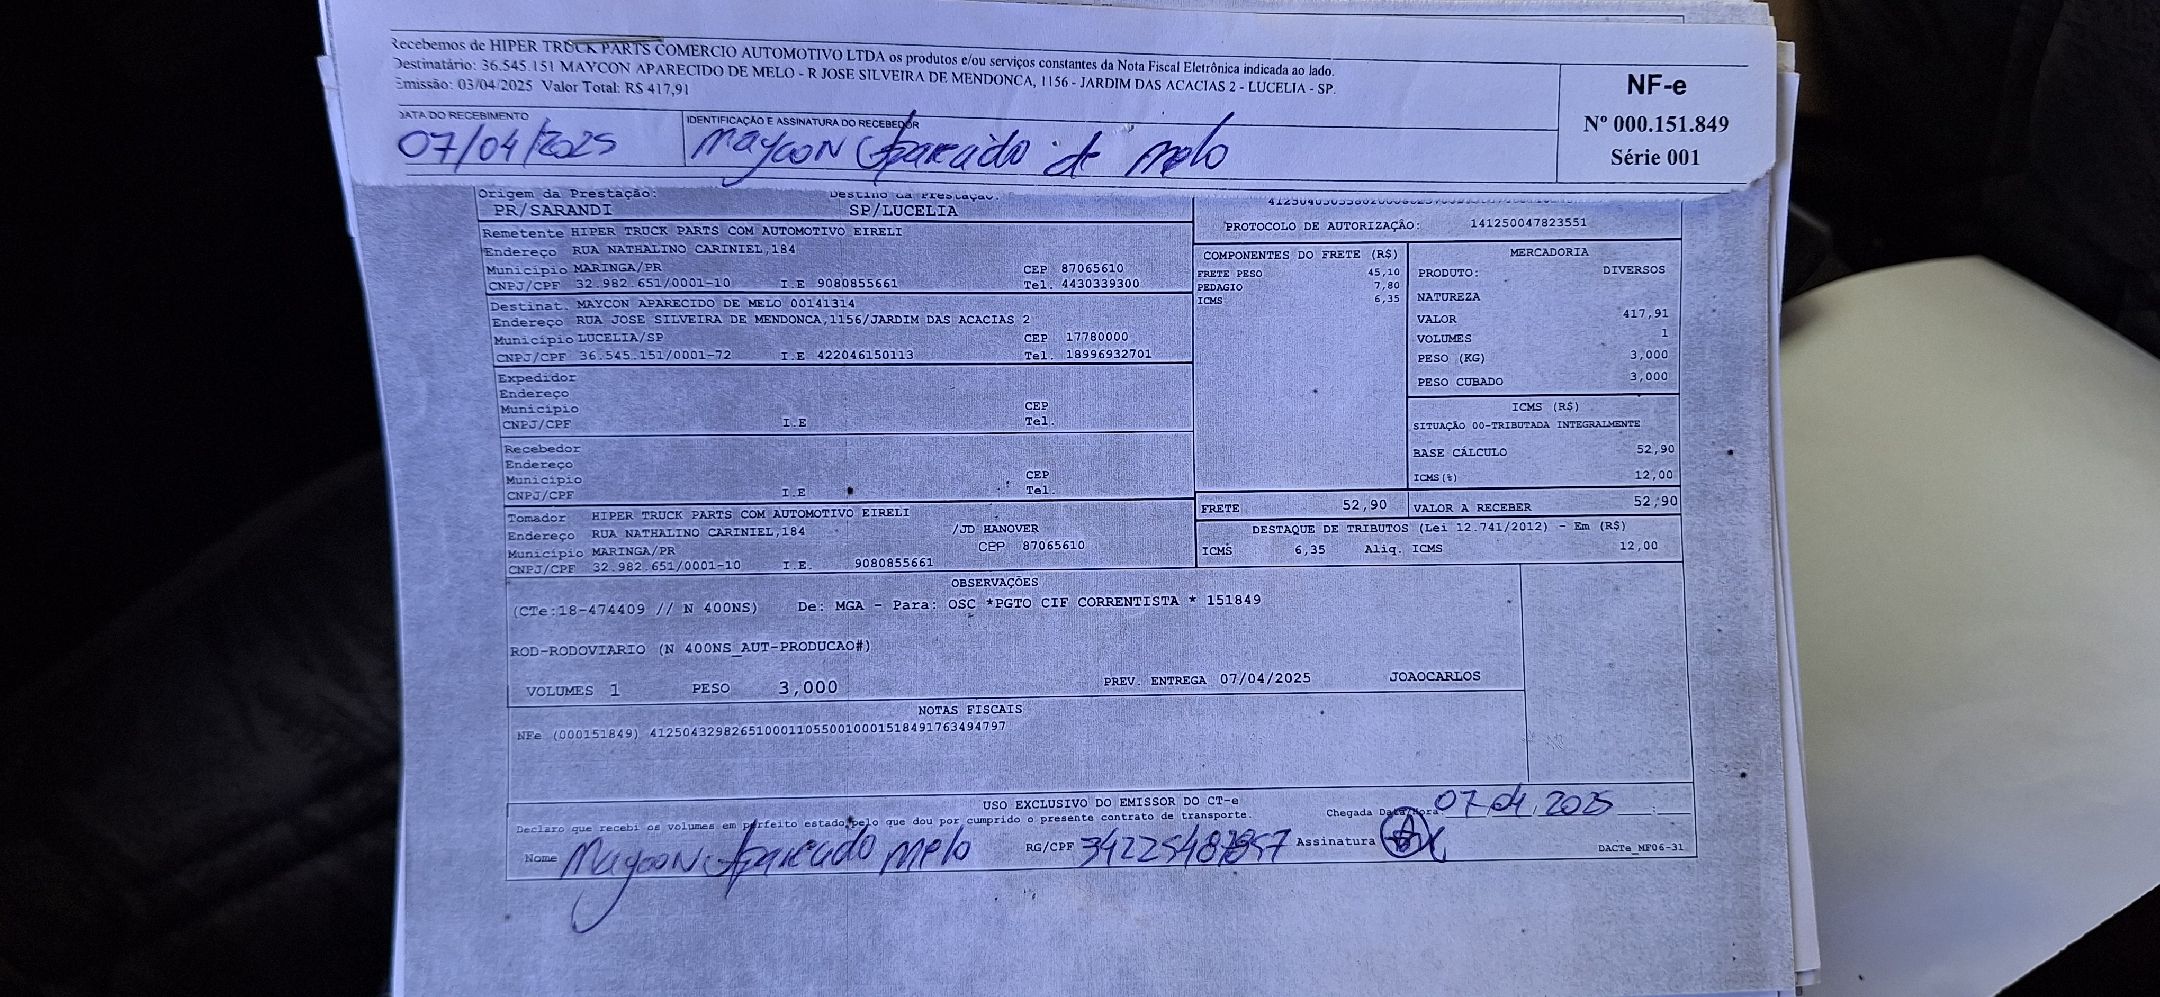 Recebemos de HIPER TRUCK PARTS COMERCIO AUTOMOTIVO LTDA os produtos e/ou serviços constantes da Nota Fiscal Eletrônica indicada ao lado.
Destinatário: 36.545.151 MAYCON APARECIDO DE MELO - R JOSE SILVEIRA DE MENDONCA, 1156 - JARDIM DAS ACACIAS 2 - LUCELIA - SP.
Emissão: 03/04/2025 Valor Total: R$ 417,91
NF-e
Nº 000.151.849
Série 001
DATA DO RECEBIMENTO
07/04/2025
IDENTIFICAÇÃO E ASSINATURA DO RECEBEDOR
Maycon Aparecido de Melo
Origem da Prestação: Destino da Prestação:
PR/SARANDI SP/LUCELIA
PROTOCOLO DE AUTORIZAÇÃO: 141250047823551
Remetente HIPER TRUCK PARTS COM AUTOMOTIVO EIRELI
Endereço RUA NATHALINO CARINIEL,184
Município MARINGA/PR CEP 87065610
CNPJ/CPF 32.982.651/0001-10 I.E 9080855661 Tel. 4430339300
Destinat. MAYCON APARECIDO DE MELO 00141314
Endereço RUA JOSE SILVEIRA DE MENDONCA,1156/JARDIM DAS ACACIAS 2
Município LUCELIA/SP CEP 17780000
CNPJ/CPF 36.545.151/0001-72 I.E 422046150113 Tel. 18996932701
Expedidor
Endereço
Município CEP
CNPJ/CPF I.E Tel.
Recebedor
Endereço
Município CEP
CNPJ/CPF I.E Tel.
Tomador HIPER TRUCK PARTS COM AUTOMOTIVO EIRELI
Endereço RUA NATHALINO CARINIEL,184 /JD HANOVER
Município MARINGA/PR CEP 87065610
CNPJ/CPF 32.982.651/0001-10 I.E. 9080855661
COMPONENTES DO FRETE (R$)
FRETE PESO 45,10
PEDAGIO 7,80
ICMS 6,35
MERCADORIA
PRODUTO: DIVERSOS
NATUREZA
VALOR 417,91
VOLUMES 1
PESO (KG) 3,000
PESO CUBADO 3,000
ICMS (R$)
SITUAÇÃO 00-TRIBUTADA INTEGRALMENTE
BASE CÁLCULO 52,90
ICMS(%) 12,00
FRETE 52,90 VALOR A RECEBER 52,90
DESTAQUE DE TRIBUTOS (Lei 12.741/2012) - Em (R$)
ICMS 6,35 Aliq. ICMS 12,00
OBSERVAÇÕES
(CTe:18-474409 // N 400NS) De: MGA - Para: OSC *PGTO CIF CORRENTISTA * 151849
ROD-RODOVIARIO (N 400NS_AUT-PRODUCAO#)
VOLUMES 1 PESO 3,000 PREV. ENTREGA 07/04/2025 JOAOCARLOS
NOTAS FISCAIS
NFe (000151849) 41250432982651000110550010001518491763494797
USO EXCLUSIVO DO EMISSOR DO CT-e
Declaro que recebi os volumes em perfeito estado pelo que dou por cumprido o presente contrato de transporte. Chegada Data/Hora 07 04 2025 :
Nome Maycon Aparecido Melo RG/CPF Assinatura
DACTe_MF06-31